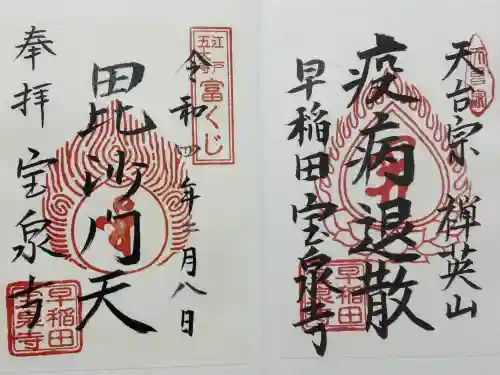 天台宗 禅英山
疫病退散
早稲田宝泉寺
天台宗
早稲田
令和四年三月八日
富くじ
毘沙門天
奉拝 宝泉寺
早稲田
宝泉寺